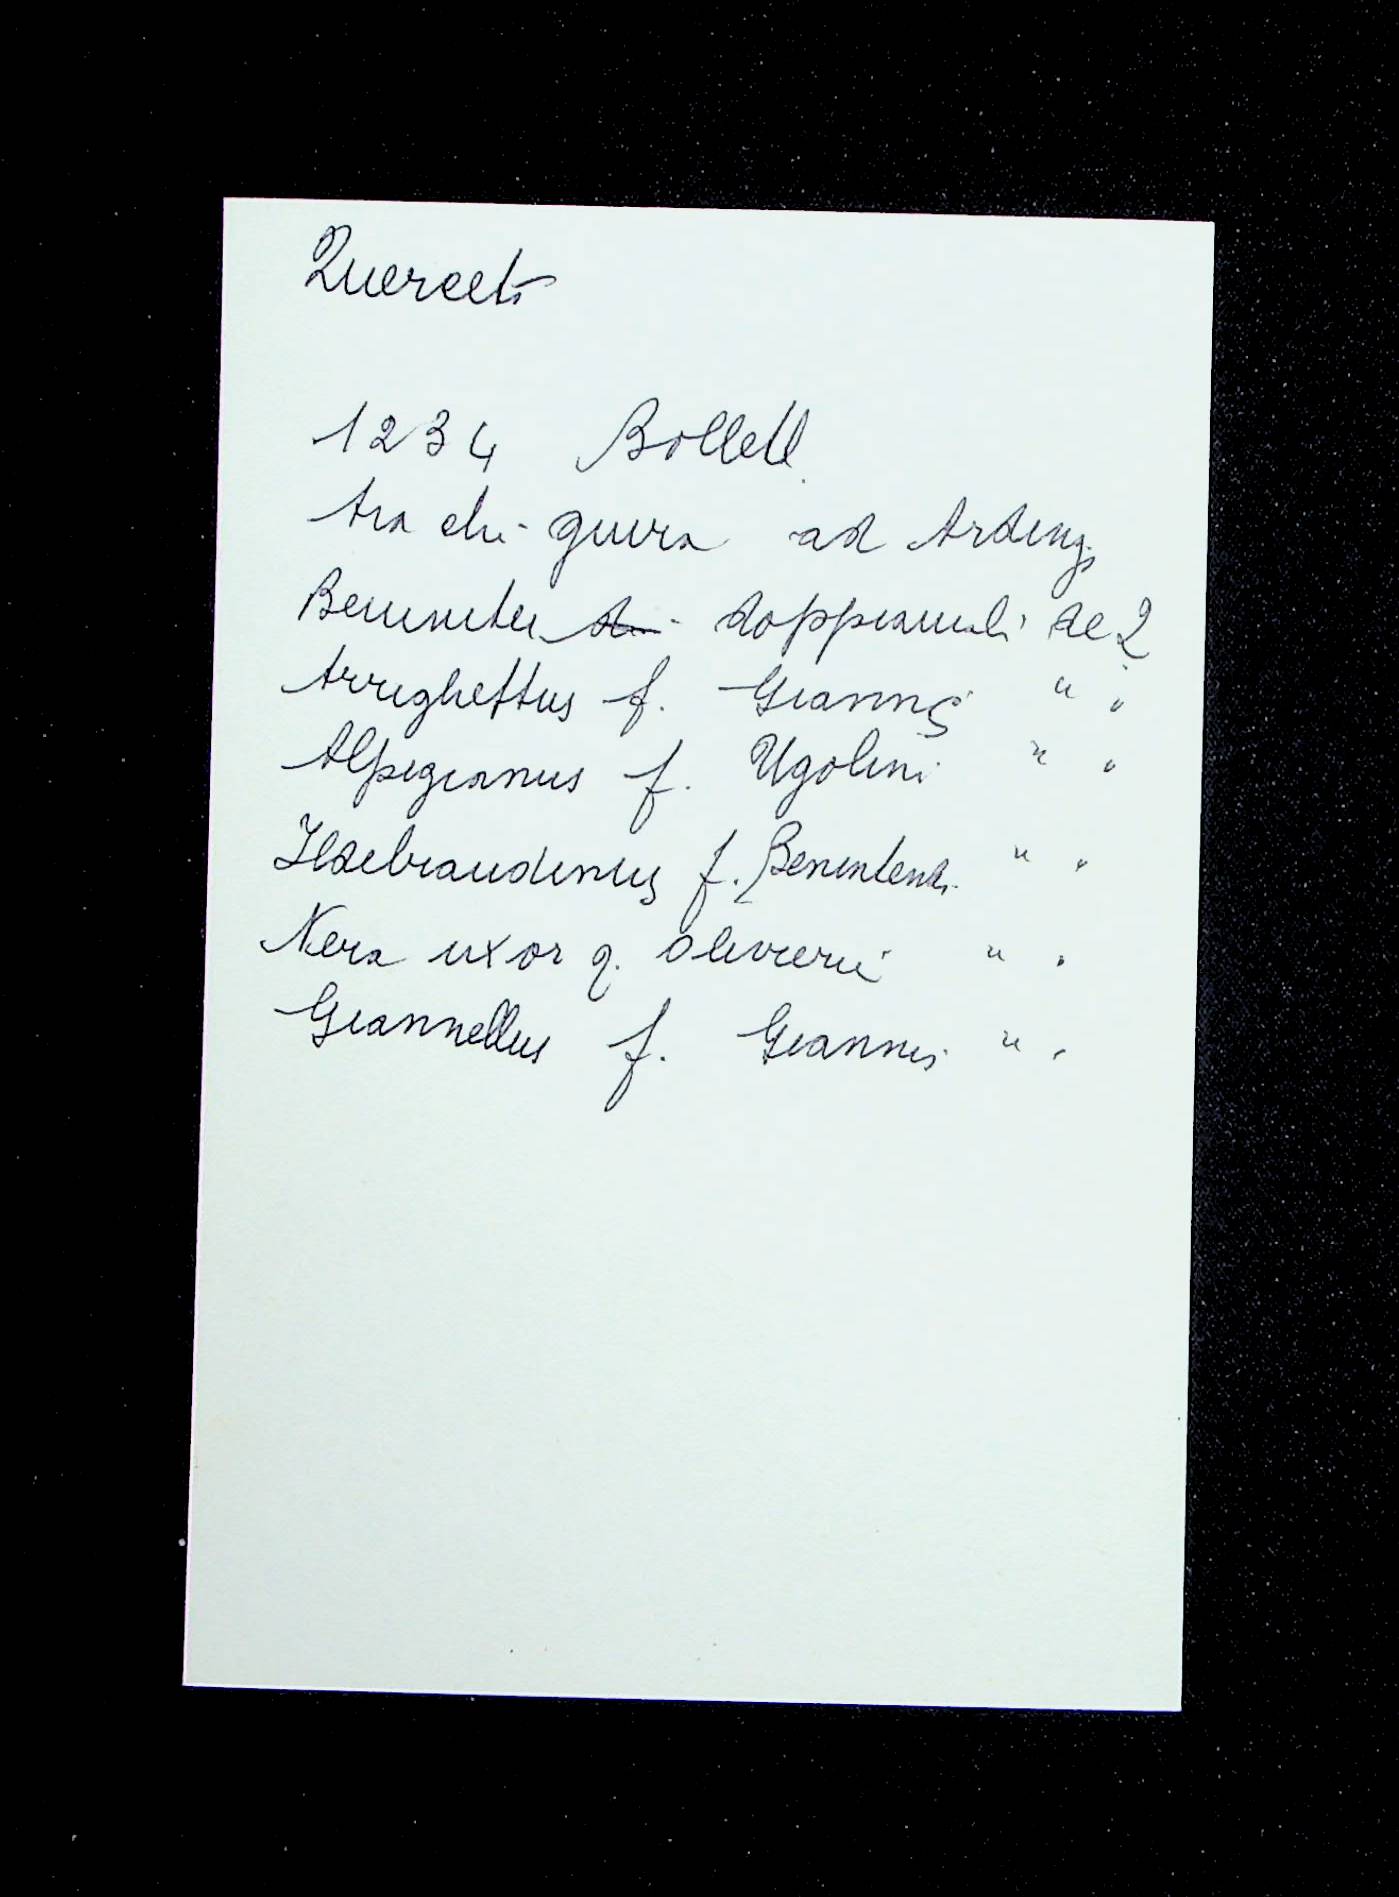 Querceto
1234 Bollett.
tra chi giura ad Arding.
Benvinte di doppiamoli de Q
Arrighettus f. Giannis " "
Alpigianus f. Ugolini " "
Ildebrandinus f. Benintendi " "
Nera uxor q. Olivieri " "
Giannellus f. Giannis " "